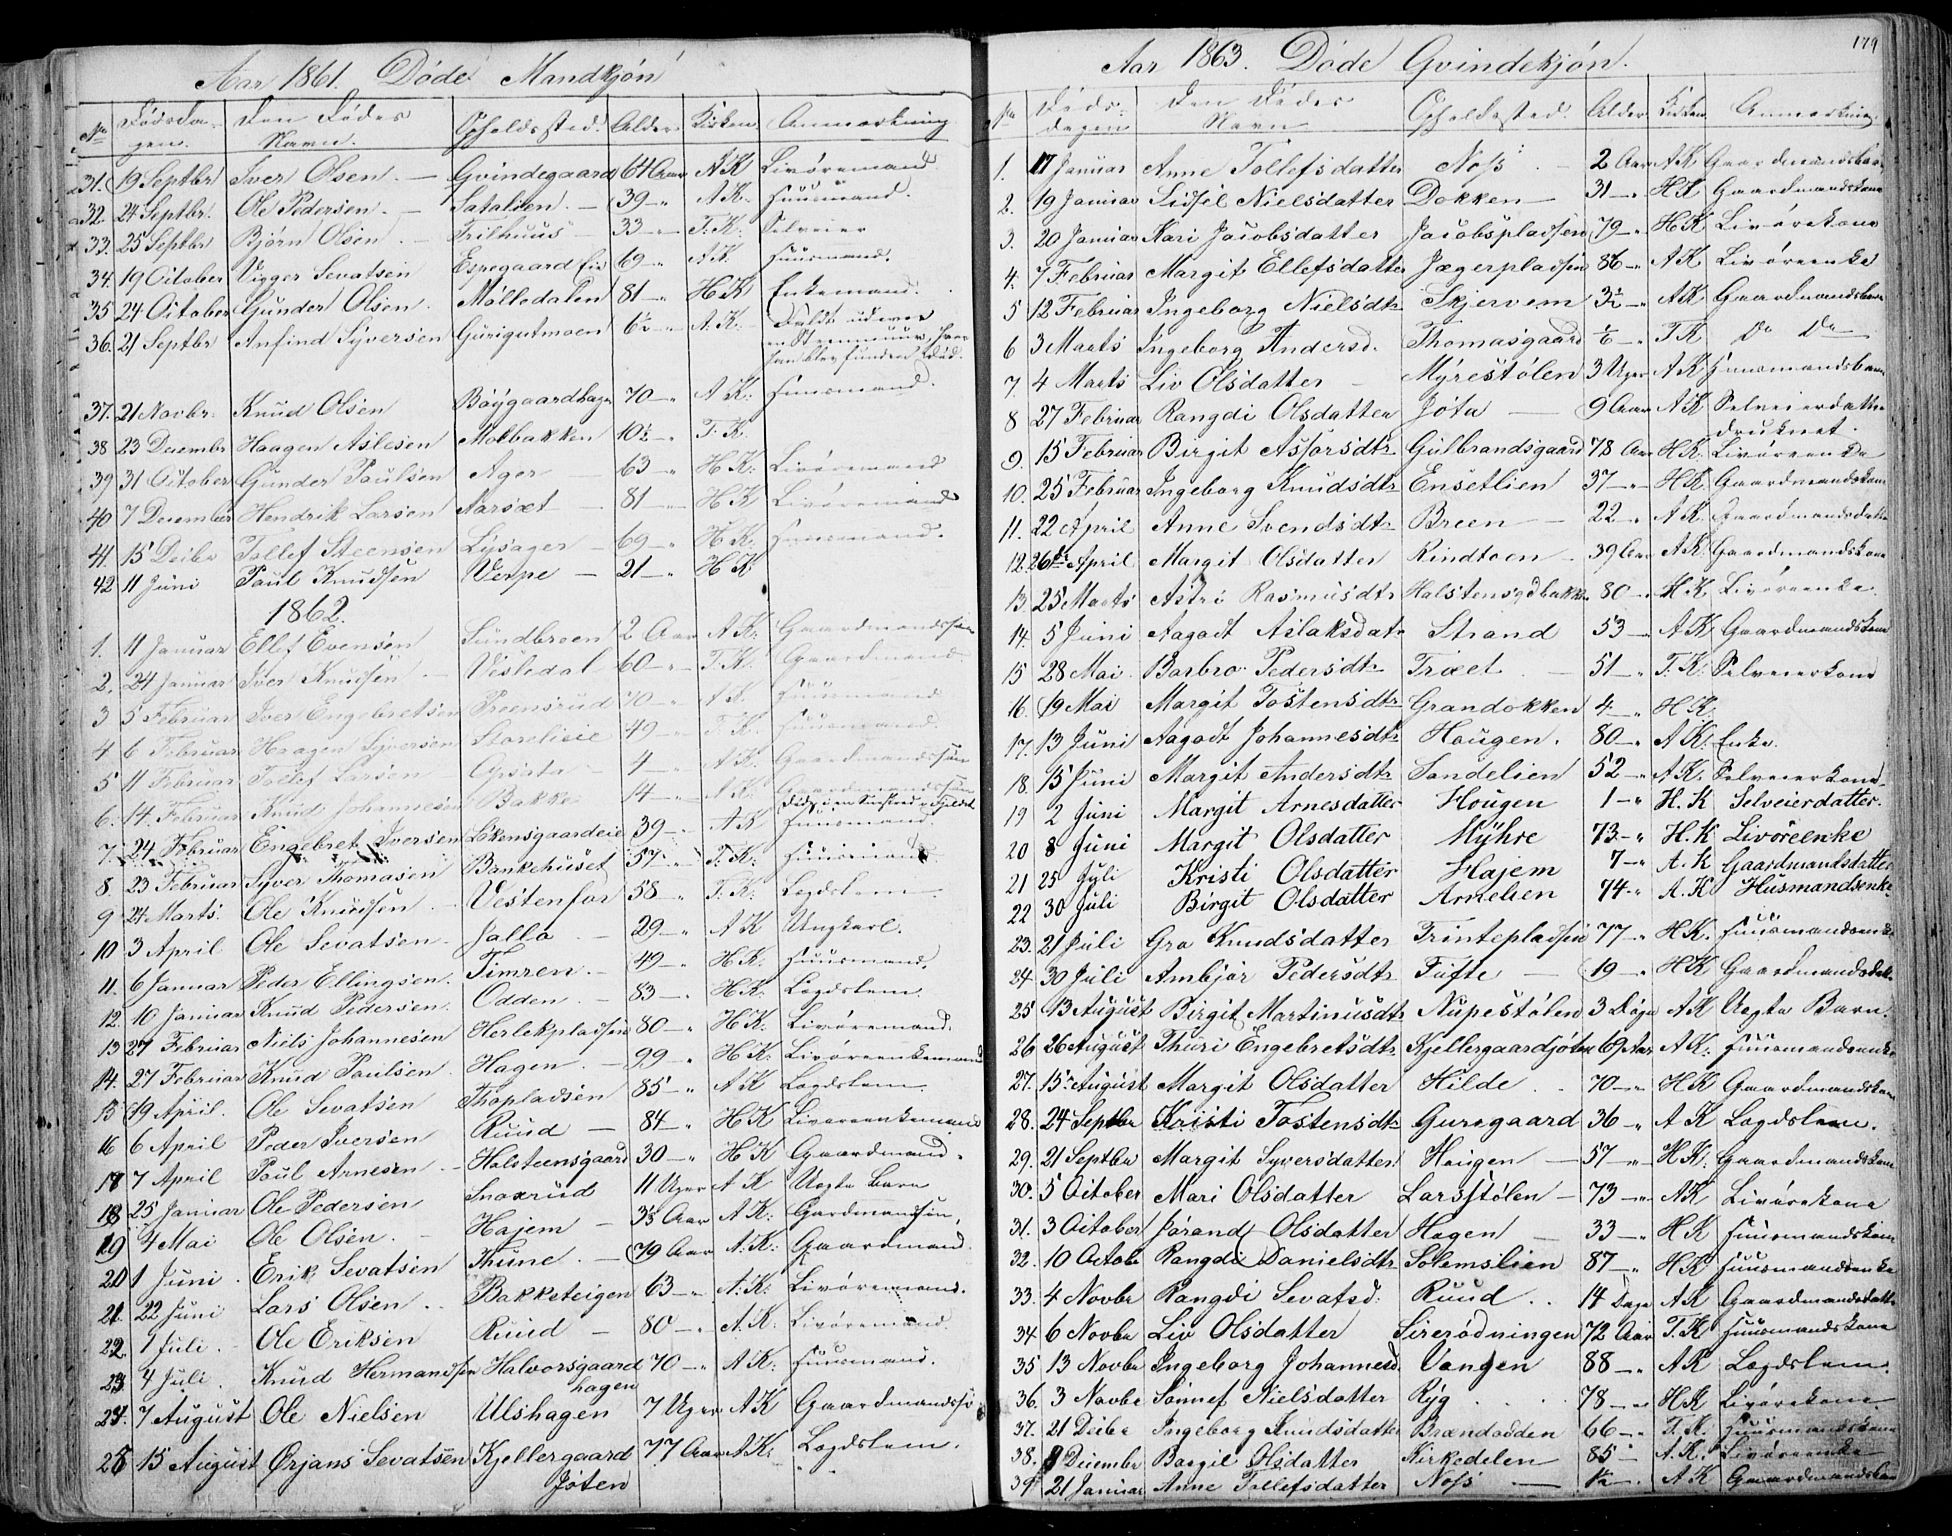 Aar 1861. Døde Mandkjøn
No Dødsda- Den Dødes Opholdssted. Alder Kirken Anmærkning
gen. Navn.
31. 19 Septbr Iver Olsen. — Gvindegaard 64 Aar AK Livøremand
32. 24 Septbr. Ole Pedersen. — Sataslien. — 39 — „ A.K. Huusmand.
33. 25 Septbr Bjørn Olsen. — Trilhuus — 33 — „ T.K. Selveier
34. 19 October Vigger Sevatsen Espegaard Eie 69 — „ A.K. Huusmand.
35 24 October Gunder Olsen. Mølledalen 81 — „ H.K. Enkemand.
36. 21 Septbr Anfind Syversen Gurigutmoen 6½ — „ A.K.
37. 21 Novbr. Knud Olsen Bøygaardhagen 70 — „ A.K. Huusmand.
38 23 Decembr Haagen Aslesen Molbakken 10½ — „ T.K.
39 31 October Gunder Paulsen Ager — 63 — „ H.K. Livøremand
40 7 December Hendrik Larsen Narsæt — 81 — „ H.K Livøremand
41. 15 Decbr Tollef Steensen Lysager — 69 — „ H.K. Huusmand.
42 11 Juni Paul Knudsen Verpe — 21 — „ H.K
1862.
1. 11 Januar Ellef Evensen Sundbreen 2 Aar A.K. Gaardmandssøn
2. 24 Januar Iver Knudsen — Vesledal 60 — „ T.K. Gaardmand.
3 5 Februar Iver Engebretsen Preensrud 70 — „ A.K. Huusmand
4 6 Februar Haagen Syversen Storelieie 49 — „ T.K. Huusmand
5 11 Februar Tollef Larsen — Opsata — 4 — „ A.K. Gaardmandssøn
6. 14. Februar Knud Johannesen Bakke 14 — „ A.K. Gaardmandssøn
7. 24 Februar Engebret Iversen Løkensgaardeie 39 — „ A.K Huusmand
8. 23 Februar Syver Thomasen Bankehuset 57 — „ T.K. Huusmand
9 24 Marts. Ole Knudsen — Vestenfor 58 — „ T.K. Lægdslem
10 3 April Ole Sevatsen. Jalla — 29 — „ A K Ungkarl.
11. 6 Januar Peder Ellingsen. Timren. — 49 — „ H.K. Huusmand.
12. 10 Januar Knud Pedersen. Odden. — 83 — „ H.K. Lægdslem.
13 27 Februar Niels Johannesen Herlekpladsen 80 — „ H.K. Livøremand.
14. 27 Februar Knud Paulsen. Hagen. — 99 — „ H.K. Livøreenkemand
15 19 April. Ole Sevatsen Thopladsen 85 — „ A K Lægdslem.
16 6 April Peder Iversen Ruud — 84 — „ H.K Livøreenkemand
17 7 April Paul Arnesen — Halsteensgaard 30 — „ H K Gaardmand.
18 25 Januar Ole Pedersen Snarrud 11 Uger A K Uægte Barn
19 4 Mai Ole Olsen. — Hajem — 3½ Aar A.K. Gardmandssøn,
20 1 Juni. Erik Sevatsen Thune. — 79 Aar A.K. Gaardmand.
21 22 Juni Lars Olsen.. Bakketeigen 63 — „ A.K. Livøremand.
22. 1 Juli. Ole Eriksen Ruud — 80 — „ A.K. Livøremand.
23 4 Juli. Knud Hermandsen Halvorsgaard 70 — „ A.K. Huusmand.
hagen
24. 7 August Ole Nielsen Ulshagen 7 Uger A K Gaardmandssø
25 15 August Ørjans Sevatsen Kjellergaard 77 Aar A.K. Lægdslem.
Jøten
179
Aar 1863. Døde Qvindekjøn.
No Døds- Den Dødes Opholdssted. Alder Kirken Anmærkning.
dagen Navn
1. 17 Januar Anne Tollefsdatter Noss — 2 Aar A K Gaardmandsbarn
2. 19 Januar Sidsil Nielsdatter Dokken — 31 — „ H.K Gaardmandskone
3. 20 Januar Kari Jacobsdatter Jacobspladsen 79 — „ H.K Livørekone
4. 7 Februar Margit Ellefsdatter Jægerpladsen 86 — „ A.K Livøreenke
5 12 Februar Ingeborg Nielsdtr Skjervem 3½ — „ A.K Gaardmandsbarn
6 3 Marts Ingeborg Andersd. Thomasgaard ½ — „ T K Do Do —
7. 4 Marts Liv Olsdatter — Myrestølen 3 Uger A K Huusmandsbarn
8 27 Februar Rangdi Olsdatter Jøta — 9 Aar A.K Selveierdatter
druknet.
9. 15 Februar Birgit Asforsdtr Gulbrandsgaard 78 Aar H.K. Livøreenke
10. 25 Februar Ingeborg Knudsdtr Ensetlien 37 — „ H.K. Gaardmandskone
11. 22 April Anne Svendsdtr Breen — 22 — „ A K. Gaardmandsdatter
12. 26de April Margit Olsdatter Rindtoen — 39 Aar A.K Gaardmandskone
13. 25 Marts Astri Rasmusdtr Halstensgdbakke 80 — „ H.K Livøreenke.
14. 5 Juni Aagodt Aslaksdat. Strand 53 — A.K Gaardmandskone
15 28 Mai. Barbro Pedersdtr Træet. — 51 — „ T.K. Selveierkone
16. 19 Mai Margit Tostensdtr Grandokken 4 — „ H.K
17. 13 Juni Aagodt Johannesdtr Haugen. 80 — „ A.K. Enke.
18. 15 Juni Margit Andersdtr Sandelien 52 — „ A.K. Selveierkone
19 2 Juni Margit Arnesdatter Hougen 1 — „ H.K Selveierdatter.
20 8 Juni Margit Olsdatter Myhre 73 — „ H.K Livøreenke
21 25 Jyli Kristi Olsdatter Hajem 7 — „ A.K Gaardmandsdatter
22 30 Juli Birgit Olsdatter Arnelien 74 — „ A.K Husmandsenke
23. 21 Juli Gro Knudsdatter Trintepladsen 77 — „ H.K. Huusmandsenke
24. 30 Juli Ambjør Pedersdtr Tufte — 19 — „ H.K Gaardmandsdatter
25 13 August Birgit Martinusdtr Nupestølen 3 Dage A K Uægte Barn.
26 26 August Thuri Engebretsdtr Kjellergaardjøten 69 Aar A.K. Huusmandsenke
27. 15 August Margit Olsdatter Hilde — 70 — „ H.K Gaardmandskone
28. 24 Septbr Kristi Tostensdtr Guregaard 36 — „ A K Lægdslem.
29. 21 Septbr Margit Syversdatter Haugen — 57 — „ H.K. Gaardmandskone
30. 5 October Mari Olsdatter Larsstølen — 73 — „ A.K Livørekone
31. 3 October Jørand Olsdatter Hagen — 33 — „ H.K Huusmandskone
32. 10 Octobr Rangdi Danielsdtr Solemslien 87 — „ H.K Huusmandsenke
33. 4 Novbr Rangdi Sevatsd. Ruud.. 14 Dage A K Gaardmandsdatter
34 6 Novbr Liv Olsdatter Sirerødningen 72 Aar T.K Huusmandskone
35 13 Novbr Ingeborg Johannesd. Vangen 88 — „ A K Lægdslem.
36. 3 Novbr Sønnef Nielsdatter Ryg... 78 — „ H.K Livørekone
37. 21 Decbr Ingeborg Knudsdatter Brændodden 66 — „ T.K. Huusmandskone
38. 9 Decembr Bargil Olsdatter Kirkedelen 85 — „ A.K. Livøreenke
39 21 Januar Anne Tollefsdatter Noss — ½ — „ A K Gaardmandsbarn